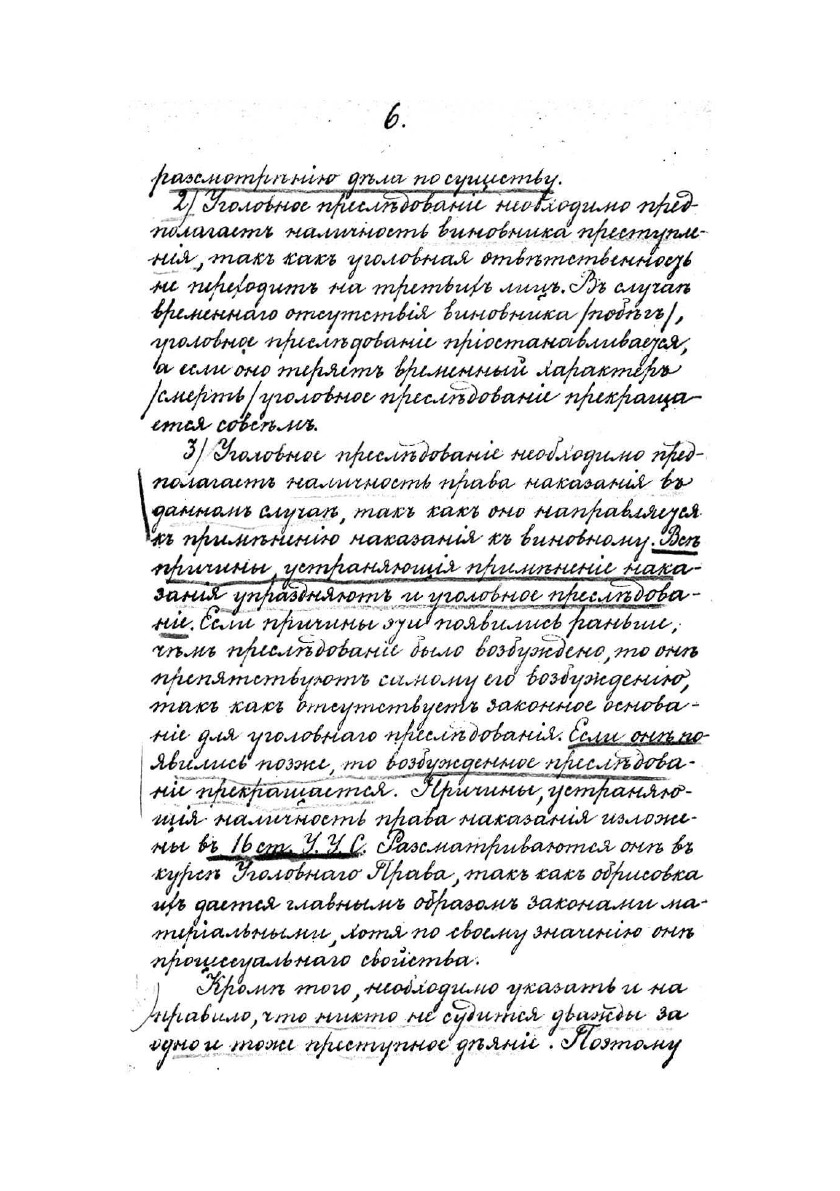 6.
разсмотрѣнію дѣла по существу.
2) Уголовное преслѣдованіе необходимо пред-
полагаетъ наличность виновника преступле-
нія, такъ какъ уголовная отвѣтственность
не переходитъ на третьихъ лицъ. Въ случаѣ
временнаго отсутствія виновника /побѣгъ/,
уголовное преслѣдованіе пріостанавливается,
а если оно теряетъ временный характеръ
/смерть/ уголовное преслѣдованіе прекраща-
ется совсѣмъ.
3) Уголовное преслѣдованіе необходимо пред-
полагаетъ наличность права наказанія въ
данномъ случаѣ, такъ какъ оно направляется
къ примѣненію наказанія къ виновному. Всѣ
причины, устраняющія примѣненіе нака-
занія упраздняютъ и уголовное преслѣдова-
ніе. Если причины эти появились раньше,
чѣмъ преслѣдованіе было возбуждено, то онѣ
препятствуютъ самому его возбужденію,
такъ какъ отсутствуетъ законное основа-
ніе для уголовнаго преслѣдованія. Если онѣ по-
явились позже, то возбужденное преслѣдова-
ніе прекращается. Причины, устраняю-
щія наличность права наказанія изложе-
ны въ 16 ст. У. У. С. Разсматриваются онѣ въ
курсѣ Уголовнаго Права, такъ какъ обрисовка
ихъ дается главнымъ образомъ законами ма-
теріальными, хотя по своему значенію онѣ
процессуальнаго свойства.
Кромѣ того, необходимо указать и на
правило, что никто не судится дважды за
одно и тоже преступное дѣяніе. Поэтому